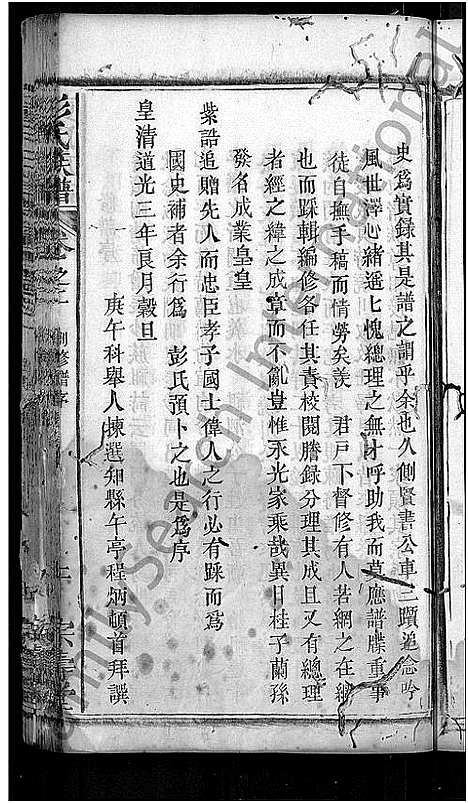 史爲實錄其是譜之謂乎余也久側賢書公車三躓追念吟
風世澤心緒遥七愧總理之無才呼助我而莫應譜牒重事
徒自撫手稿而情勞矣羡　君戸下督修有人若網之在綱
也而踩輯編修各任其責校閱謄錄分理其成且又有總理
者經之緯之成章而不亂豈惟永光家乘哉異日桂子蘭孫
發名成業皇皇
紫誥追贈先人而忠臣孝子國士偉人之行必有踩而爲
國史補者余行爲　彭氏預卜之也是爲序
皇清道光三年艮月穀旦
庚午科舉人揀選知縣午亭程炳頓首拜譔
彭氏族譜
卷之一
創修譜序
上
宗壽堂
FamilySearch International